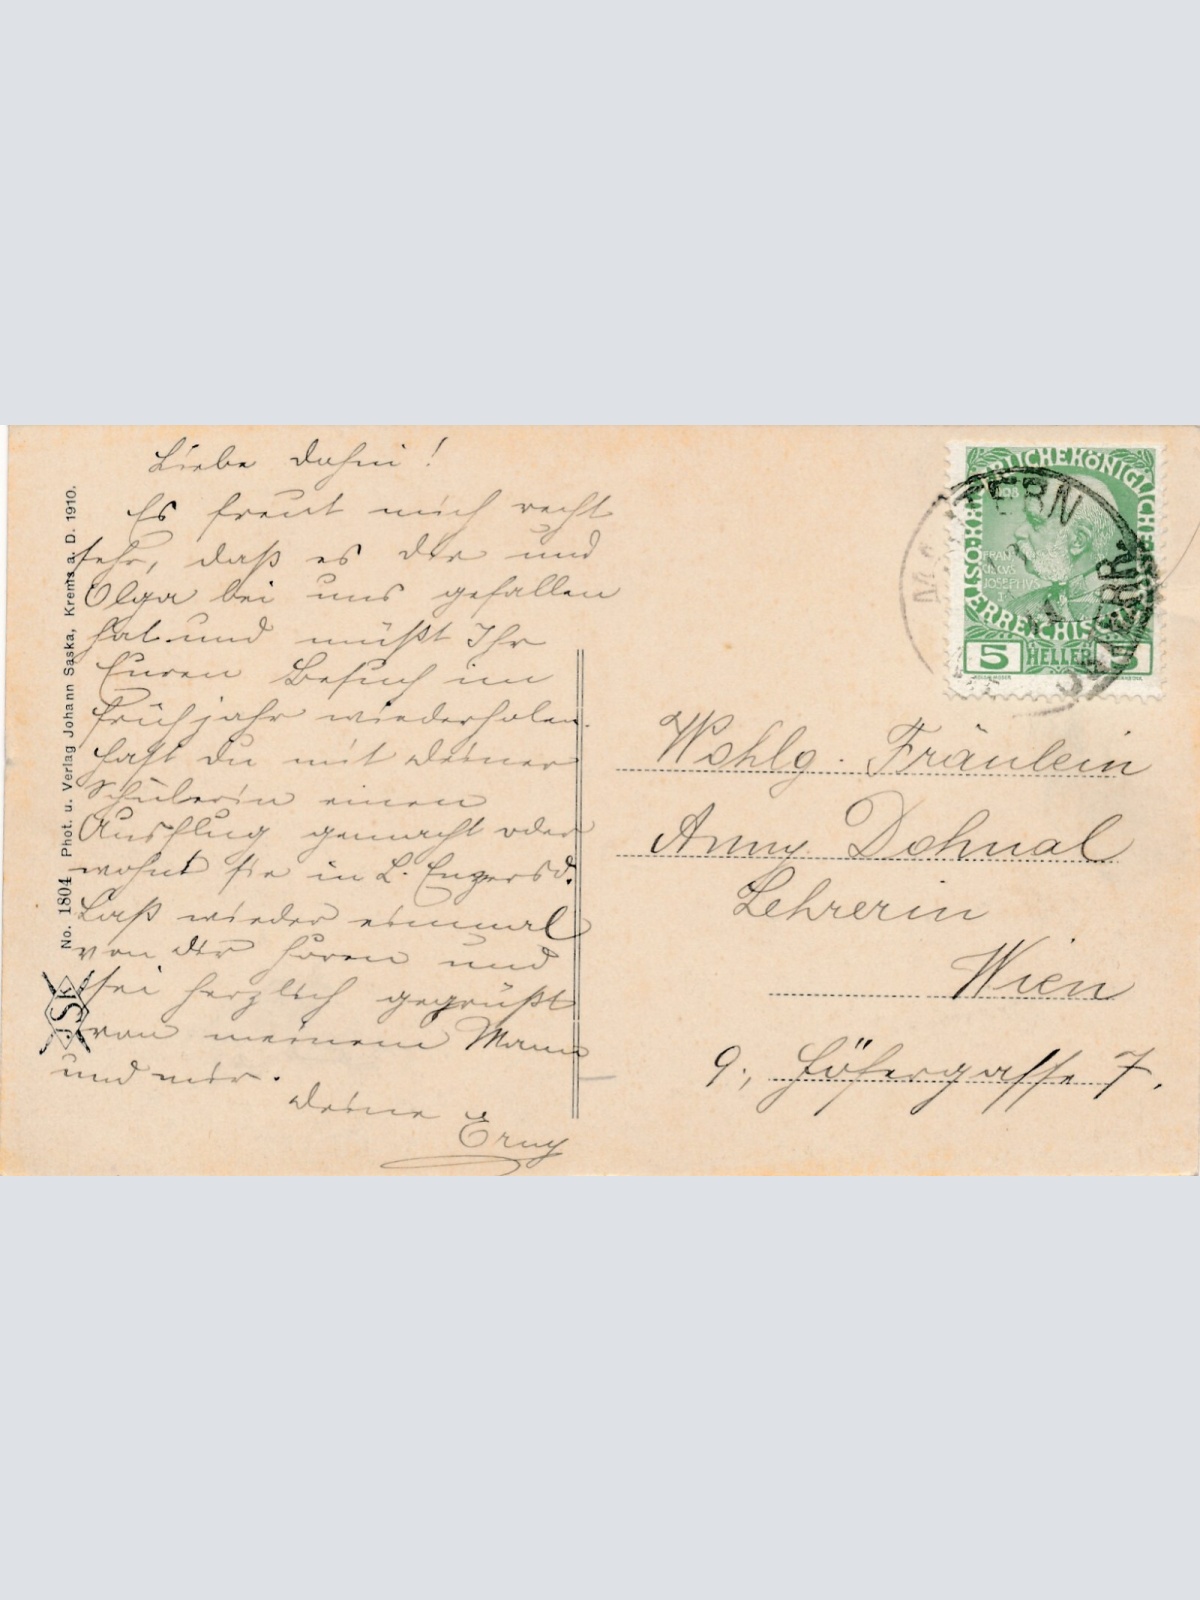 Liebe Dohni!
Es freut mich recht
sehr, daß es dir und
Olga bei uns gefallen
hat und müßt Ihr
Euren Besuch im
Frühjahr wiederholen.
Hast du mit deiner
Schülerin einen
Ausflug gemacht oder
wohnt sie in L. Enzersd.
Laß wieder einmal
von dir hören und
sei herzlich gegrüßt
von meinem Mann
und mir.
Deine
Erny
No. 1804 Phot. u. Verlag Johann Saska, Krems a. D. 1910.
JSK
ÖSTERREICHISCHE
KÖNIGLICHE
FRANCISCUS
JOSEPHUS
I
5 HELLER 5
Wohlg. Fräulein
Anny Dohnal
Lehrerin
Wien
9., Höfergasse 7.